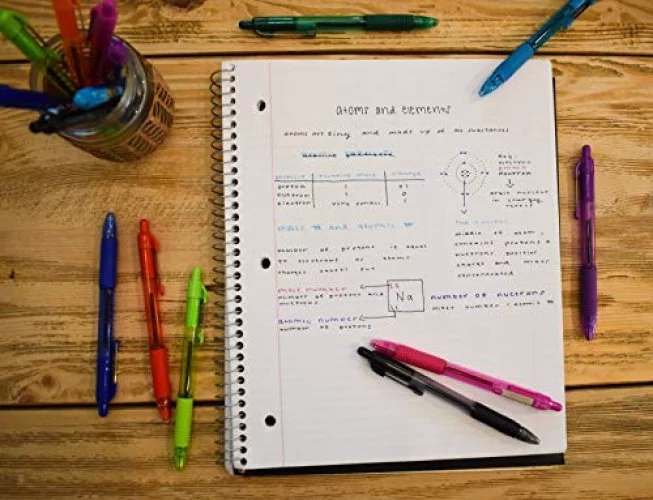 atoms and elements
atoms are tiny and made up of all substances
particle relative mass charge
proton 1 +1
neutron 1 0
electron very small
Key:
electron
proton
neutron
orbit nucleus
in energy
levels
mass # and atomic #
the nucleus
middle of atom,
contains protons &
neutrons positive
charge and mass
concentrated
number of protons is equal
to electrons so atoms
charges cancel out
mass number
number of protons and
neutrons
23
Na
11
number of neutrons
mass number - atomic #
atomic number
number of protons